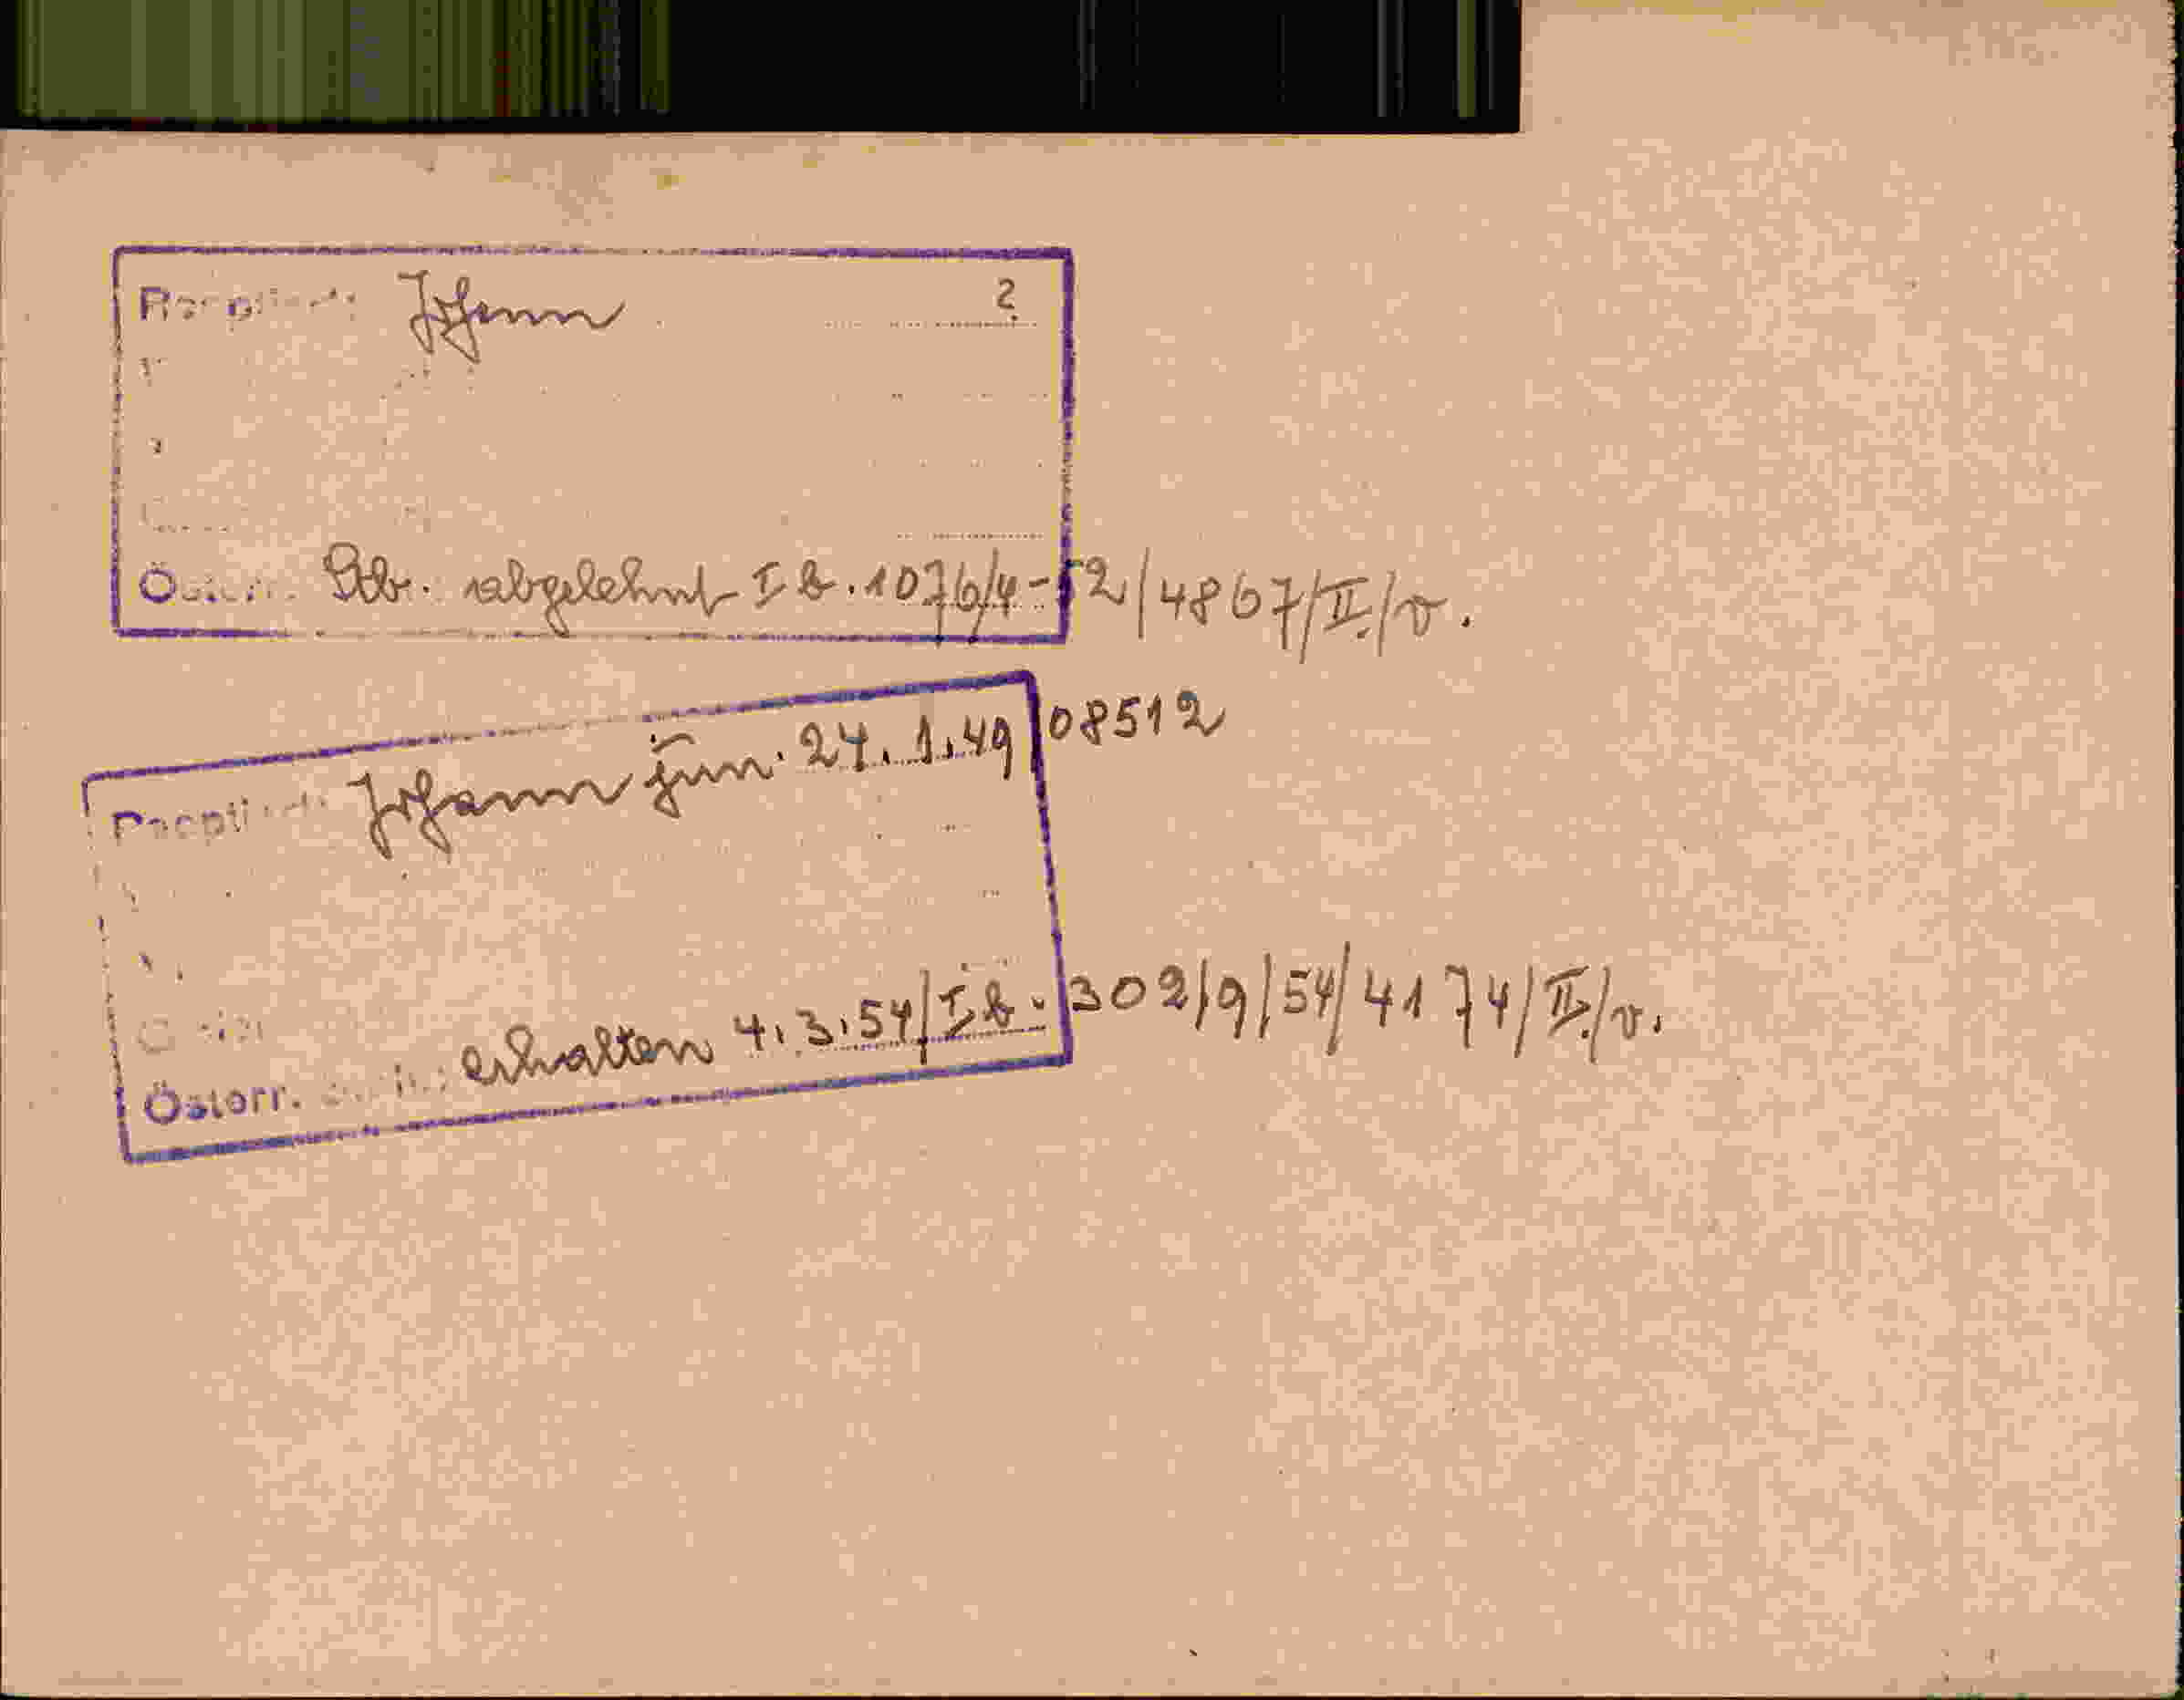 Johann ?
Österr. Stb. abgelehnt I b. 1076/4-52/4867/II./v.
Johann jun. 24.1.49/08512
Österr. erhalten 4.3.54/I. b. 302/9/54/4174/II./v.